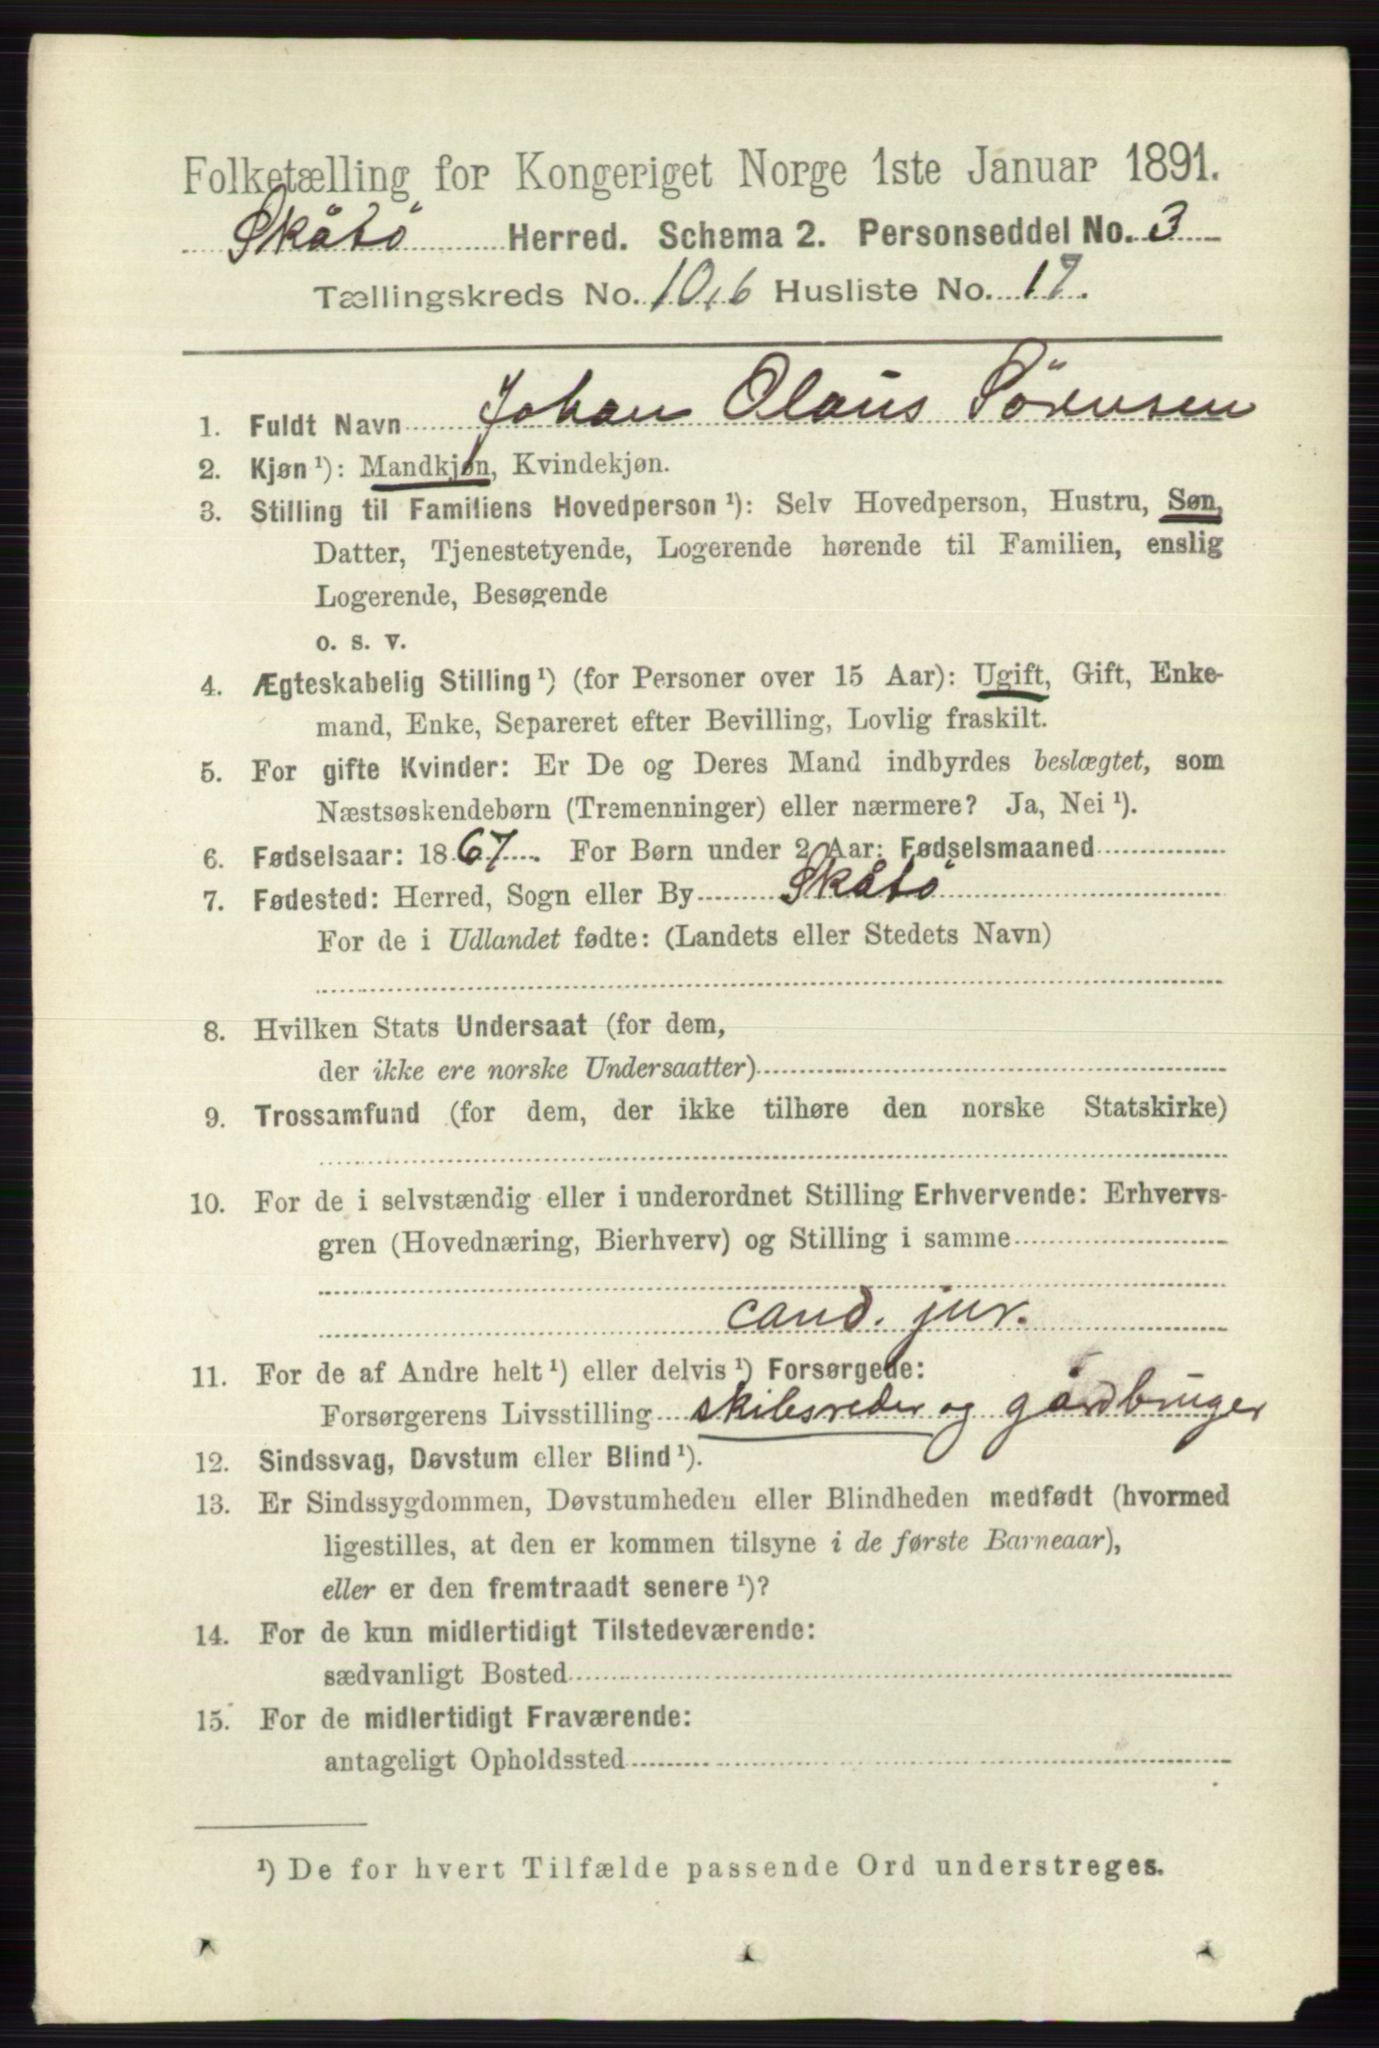 Folketælling for Kongeriget Norge 1ste Januar 1891.
Skåtö Herred. Schema 2. Personseddel No. 3
Tællingskreds No. 10,6 Husliste No. 17.
1. Fuldt Navn Johan Olaüs Sörensen
2. Kjøn ¹): Mandkjøn, Kvindekjøn.
3. Stilling til Familiens Hovedperson ¹): Selv Hovedperson, Hustru, Søn,
Datter, Tjenestetyende, Logerende hørende til Familien, enslig
Logerende, Besøgende
o. s. v.
4. Ægteskabelig Stilling ¹) (for Personer over 15 Aar): Ugift, Gift, Enke-
mand, Enke, Separeret efter Bevilling, Lovlig fraskilt.
5. For gifte Kvinder: Er De og Deres Mand indbyrdes beslægtet, som
Næstsøskendebørn (Tremenninger) eller nærmere? Ja, Nei ¹).
6. Fødselsaar: 1867. For Børn under 2 Aar: Fødselsmaaned
7. Fødested: Herred, Sogn eller By Skåtö
For de i Udlandet fødte: (Landets eller Stedets Navn)
8. Hvilken Stats Undersaat (for dem,
der ikke ere norske Undersaatter)
9. Trossamfund (for dem, der ikke tilhøre den norske Statskirke)
10. For de i selvstændig eller i underordnet Stilling Erhvervende: Erhvervs-
gren (Hovednæring, Bierhverv) og Stilling i samme
cand. jur.
11. For de af Andre helt ¹) eller delvis ¹) Forsørgede:
Forsørgerens Livsstilling skibsreder og gårdbruger
12. Sindssvag, Døvstum eller Blind ¹).
13. Er Sindssygdommen, Døvstumheden eller Blindheden medfødt (hvormed
ligestilles, at den er kommen tilsyne i de første Barneaar),
eller er den fremtraadt senere ¹)?
14. For de kun midlertidigt Tilstedeværende:
sædvanligt Bosted
15. For de midlertidigt Fraværende:
antageligt Opholdssted
¹) De for hvert Tilfælde passende Ord understreges.